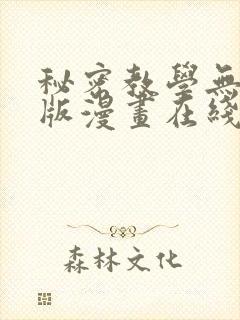 秘密教學無
版漫畫在綫
森林文化